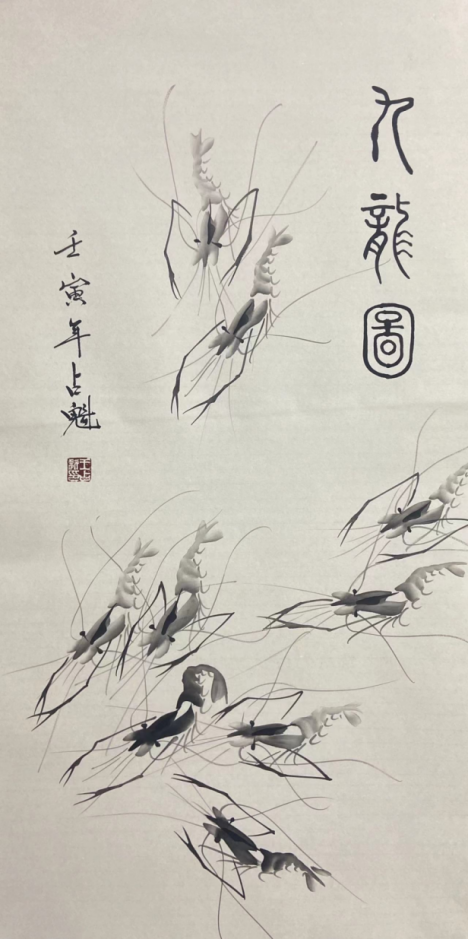 九龍圖
壬寅年占魁